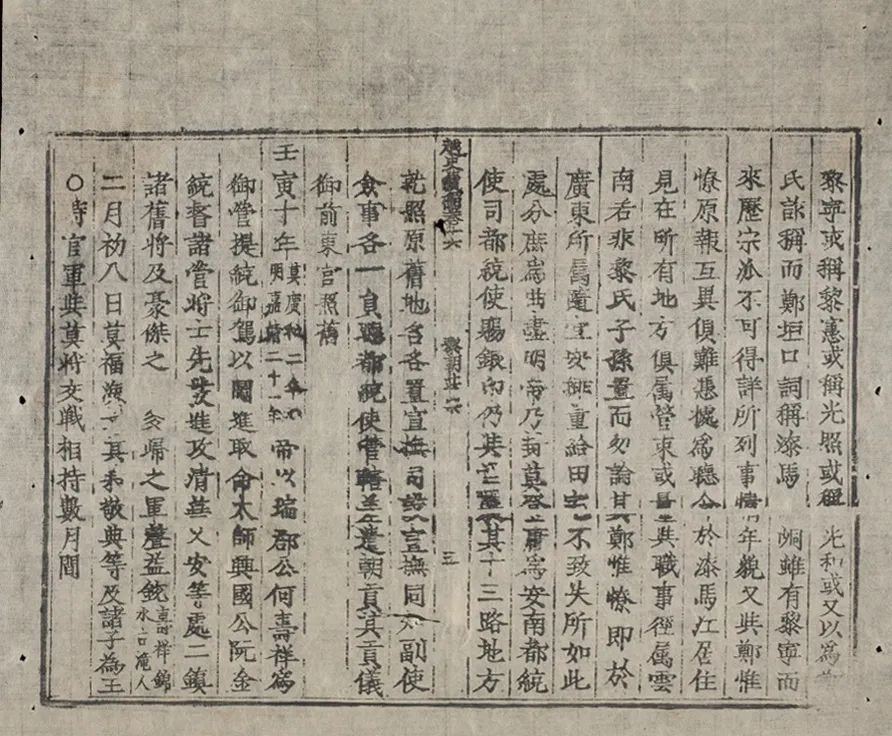 黎寧或稱黎憲或稱光照或稱 光和或又以爲
氏詼稱而鄭垣口詞稱漆馬 峒雖有黎寧而
來歷宗派不可得詳所列事情 年貌又與鄭惟
憭原報互異俱難憑據爲聽令 於漆馬江居住
見在所有地方俱屬管束或量與其職事徑屬雲
南若非黎氏子孫置而勿論其 鄭惟憭即於
廣東所屬隨宜安排重給田 不致失所如此
處分庶爲曲盡明帝乃封莫登庸爲安南都統
使司都統使賜銀印仍其 其十三路地方
越史 卷十六 黎朝莊 六 三
乾照原舊地名各置宣撫司設宣撫同 副使
僉事各一員聽都統使管轄 遣朝貢其貢儀
御前東宫照舊
壬寅十年 莫廣和二年 明嘉靖二十一年 帝以瑞郡公何壽祥爲
御營提統御駕以圖進取命太師興國公阮金
統督諸管將士先發進攻清華乂安等處二鎮
諸舊將及豪傑之 多歸之軍聲益銃 壽祥錦水古滝人
二月初八日莫福海 其 敬典等及諸子為王
○時官軍與莫將交戰相持數月間